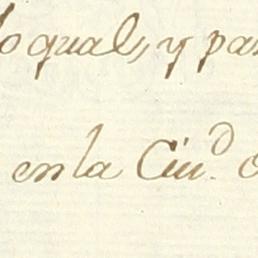 lo qual, y par
en la Ciu.d